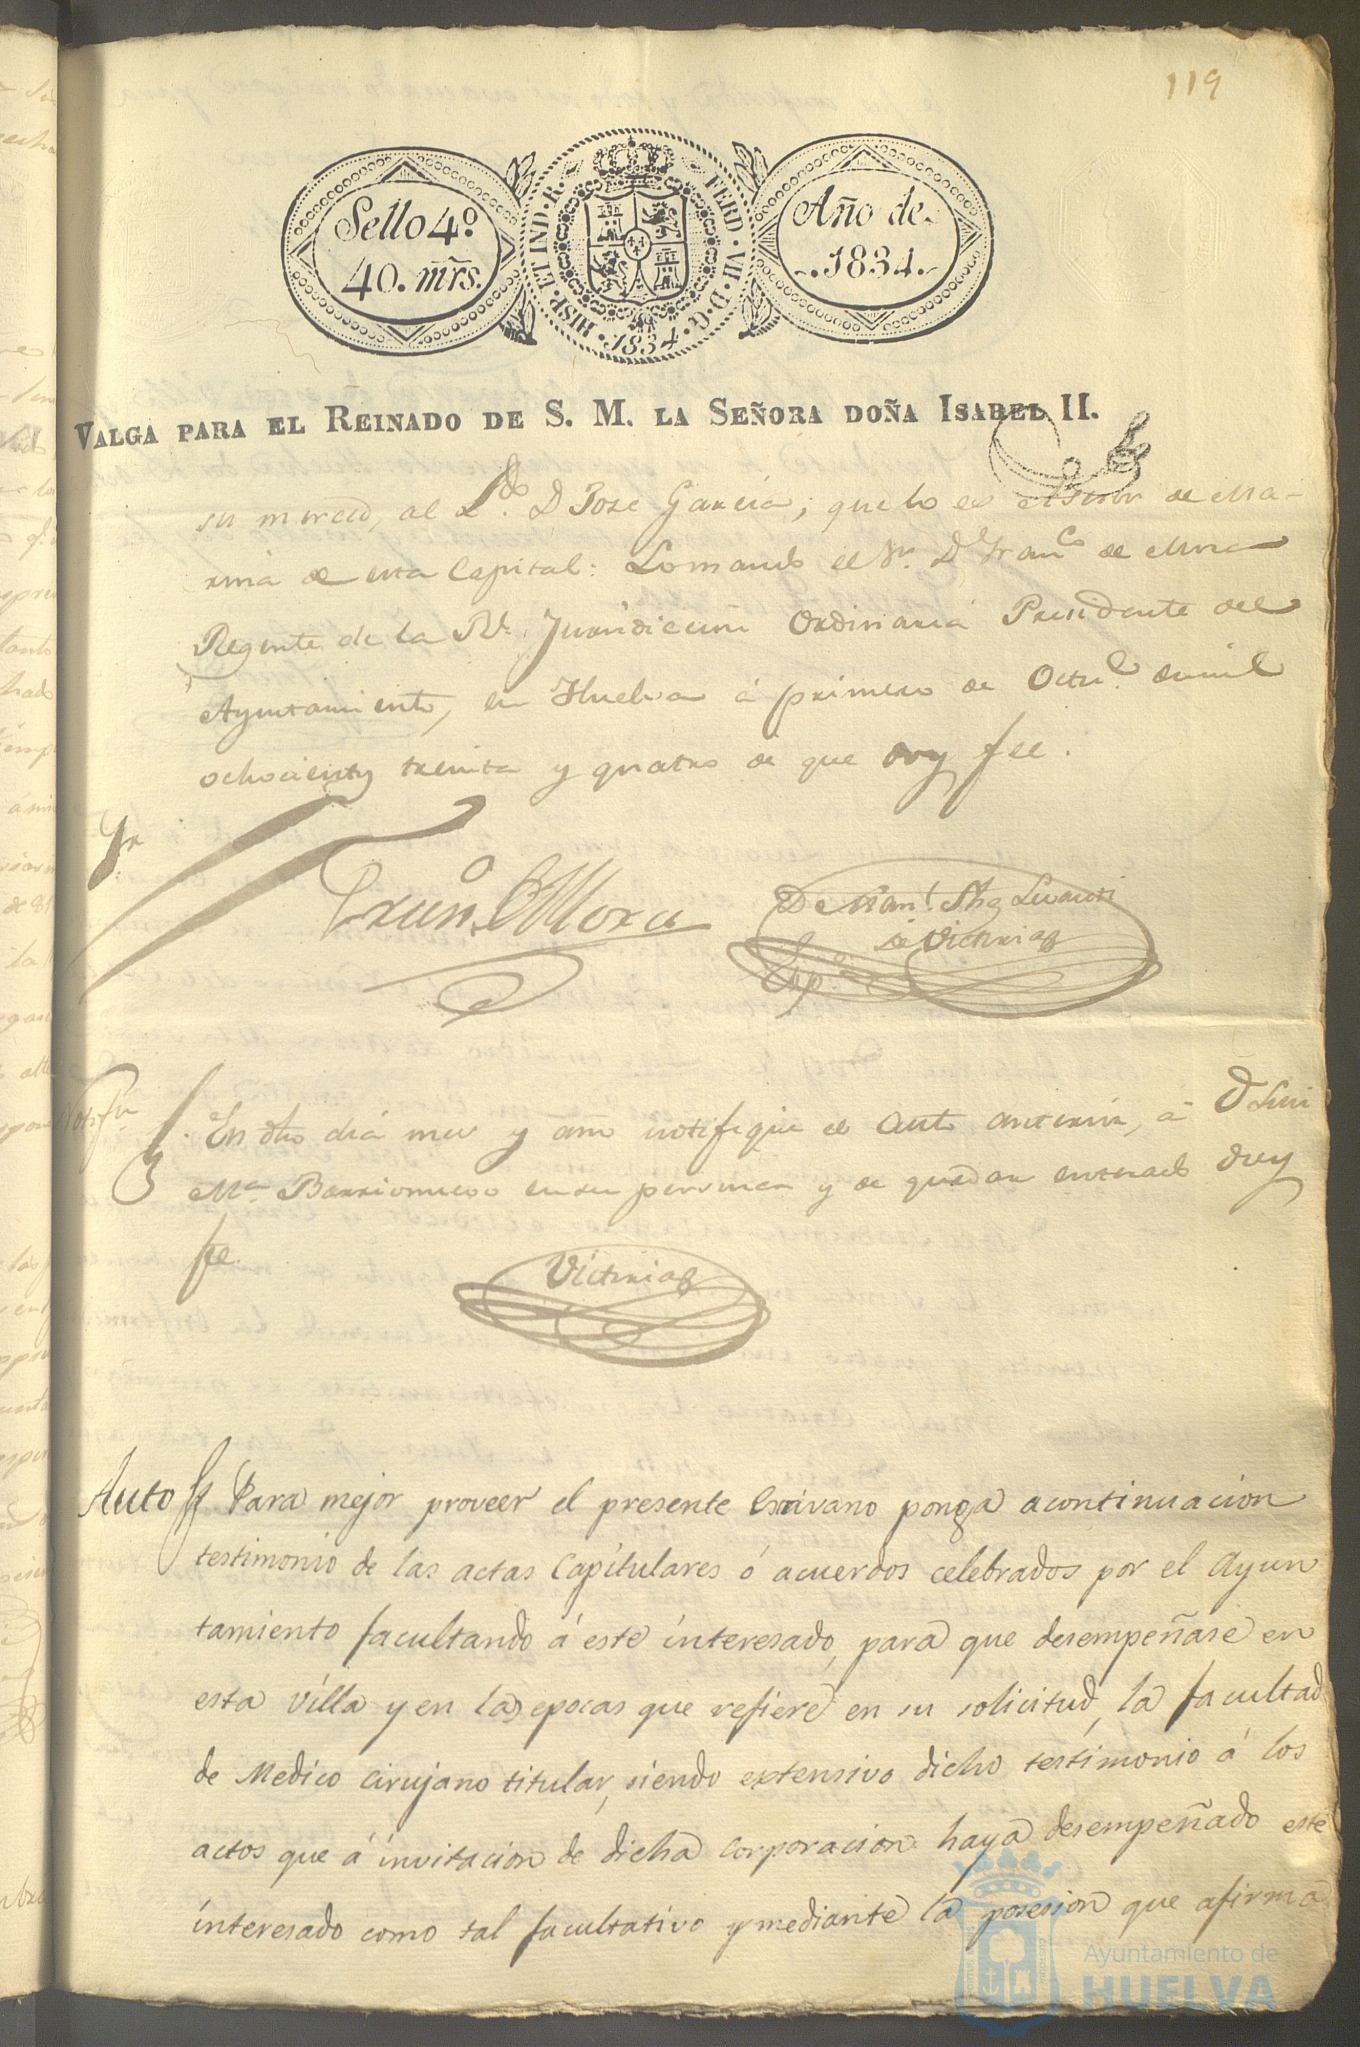 119
Sello 4.º
40. mrs.
HISP. ET IND. R. FERD. VII. D. G. 1834.
Año de
1834.
VALGA PARA EL REINADO DE S. M. LA SEÑORA DOÑA ISABEL II.
su merced, al L.do D Jose Garcia; que lo es Asesor de Ma-
rina de esta Capital: Lo mando el Sr. D.n Fran.co de Mora
Regente de la Rl. Jurisdiccion Ordinaria Presidente del
Ayuntamiento, en Huelva á primero de Octu.e de mil
ochocientos treinta y quatro de que doy fee.
Fran.co Mora
De Man.l
de Victorias
Esp.o
Notif.n
En dho dia mes y año notifique el Auto anterior, á D Luis
M.a Barrionuevo en su persona y de quedar enterado doy
fe.
Victorias
Auto
Para mejor proveer el presente Escrivano ponga acontinuacion
testimonio de las actas Capitulares ó acuerdos celebrados por el Ayun
tamiento facultando á este interesado, para que desempeñase en
esta villa y en las epocas que refiere en su solicitud, la facultad
de Medico Cirujano titular, siendo extensivo dicho testimonio á los
actos que á invitacion de dicha Corporacion haya desempeñado este
interesado como tal facultativo y mediante la posesion que afirma
Ayuntamiento de
HUELVA